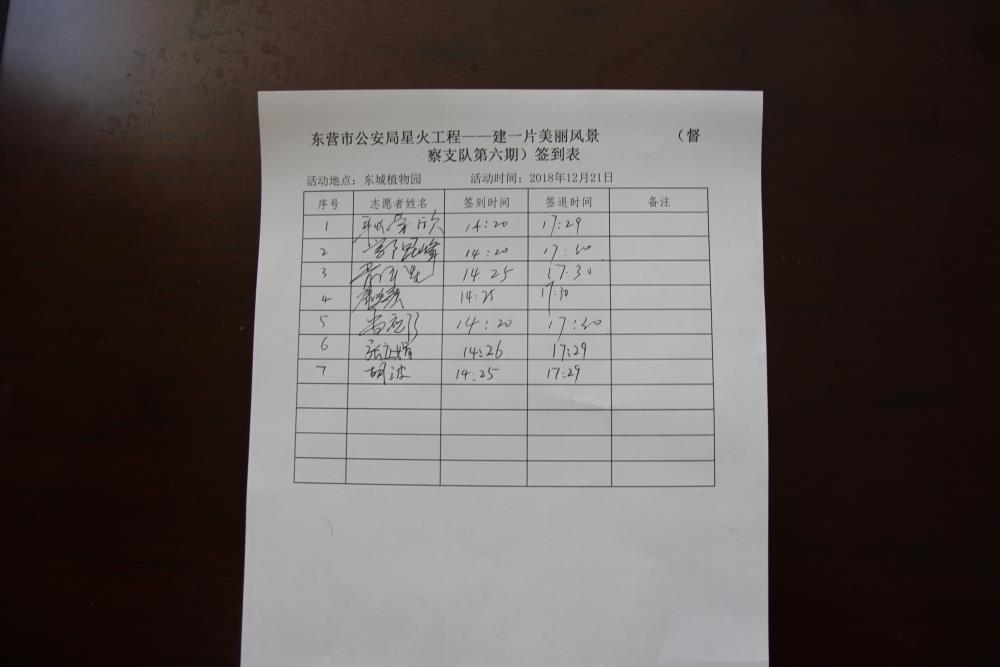 东营市公安局星火工程——建一片美丽风景 （督
察支队第六期）签到表
活动地点：东城植物园 活动时间：2018年12月21日
序号 志愿者姓名 签到时间 签退时间 备注
1 14:20 17:29
2 14:20 17:30
3 14:25 17:30
4 14:25 17:30
5 14:20 17:30
6 14:26 17:29
7 胡波 14:25 17:29